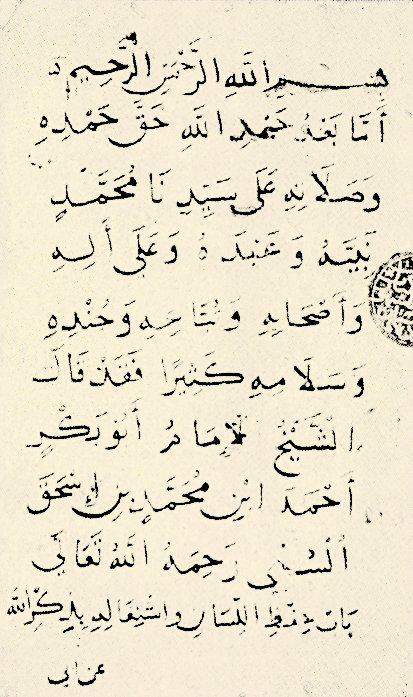 بسم الله الرَّحْمَنِ الرَّحِيمِ
أَمَّا بَعْدُ حَمْدِ اللَّهِ حَقَّ حَمْدِهِ
وَصَلَاتِهِ عَلَى سَيِّدِنَا مُحَمَّدٍ
نَبِيِّهِ وَعَبْدِهُ وَعَلَى أَلِهِ
وَأَصْحَابِهِ وَجُنْدِهِ
وَسَلَامِهِ كَثِيرًا فَقَدْ قَالَ
الشَّيْخُ الْإِمَامُ أَبُو بَكْرٍ
أَحْمَدَ ابْنِ مُحَمَّدِ بْنِ إِسْحَقَ
السُّنِّي رَحِمَهُ اللَّهُ تَعَالَى
بَابُ حِفْظِ اللِّسَانِ وَاشْتِغَالِهِ بِذِكْرِ اللَّهِ
عن ابي